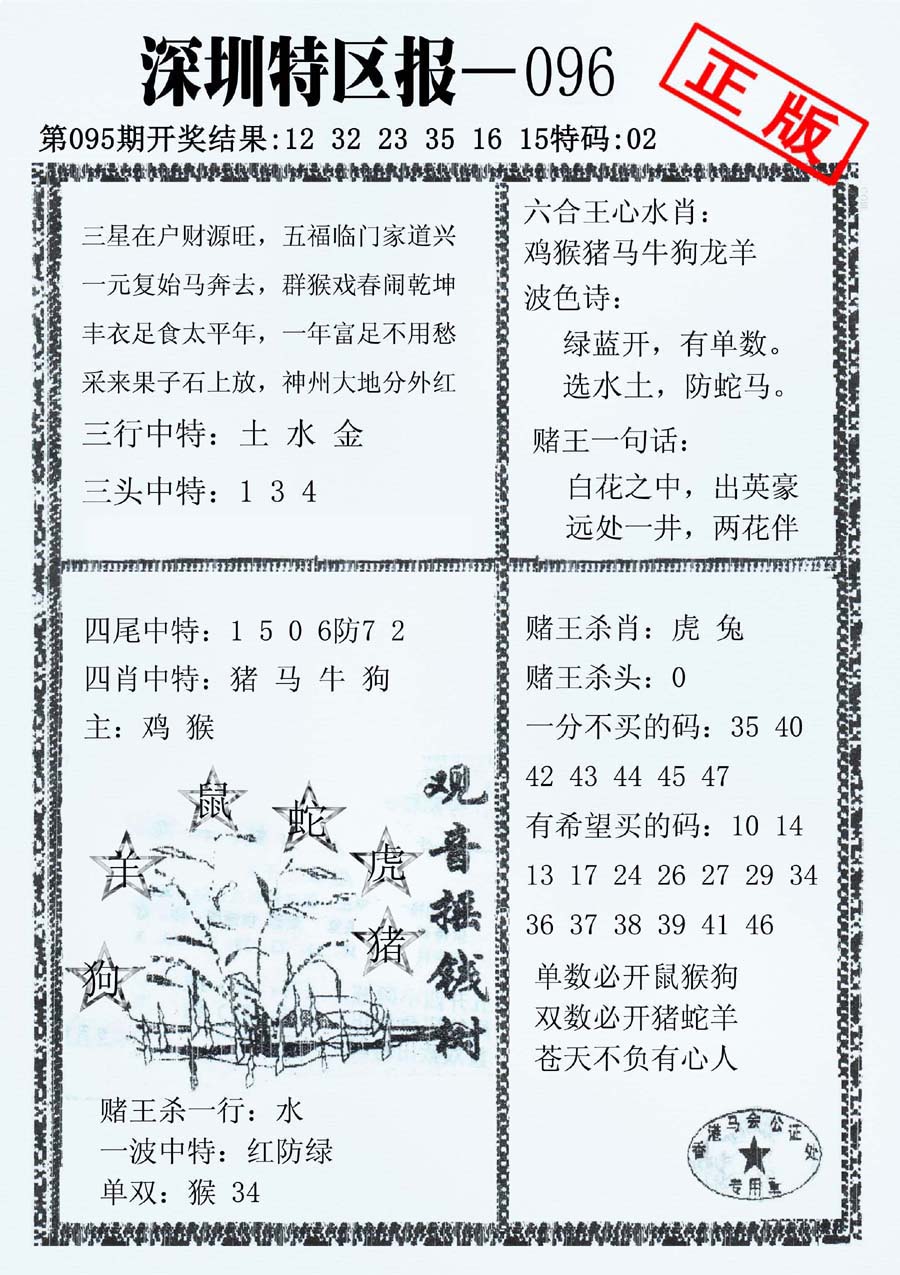 深圳特区报—096
正版
第095期开奖结果:12 32 23 35 16 15特码:02
三星在户财源旺，五福临门家道兴
一元复始马奔去，群猴戏春闹乾坤
丰衣足食太平年，一年富足不用愁
采来果子石上放，神州大地分外红
三行中特：土 水 金
三头中特：1 3 4
六合王心水肖：
鸡猴猪马牛狗龙羊
波色诗：
绿蓝开，有单数。
选水土，防蛇马。
赌王一句话：
白花之中，出英豪
远处一井，两花伴
四尾中特：1 5 0 6防7 2
四肖中特：猪 马 牛 狗
主：鸡 猴
鼠
蛇
羊
虎
猪
狗
观音摇钱树
赌王杀一行：水
一波中特：红防绿
单双：猴 34
赌王杀肖：虎 兔
赌王杀头：0
一分不买的码：35 40
42 43 44 45 47
有希望买的码：10 14
13 17 24 26 27 29 34
36 37 38 39 41 46
单数必开鼠猴狗
双数必开猪蛇羊
苍天不负有心人
香港马会公证处
专用章